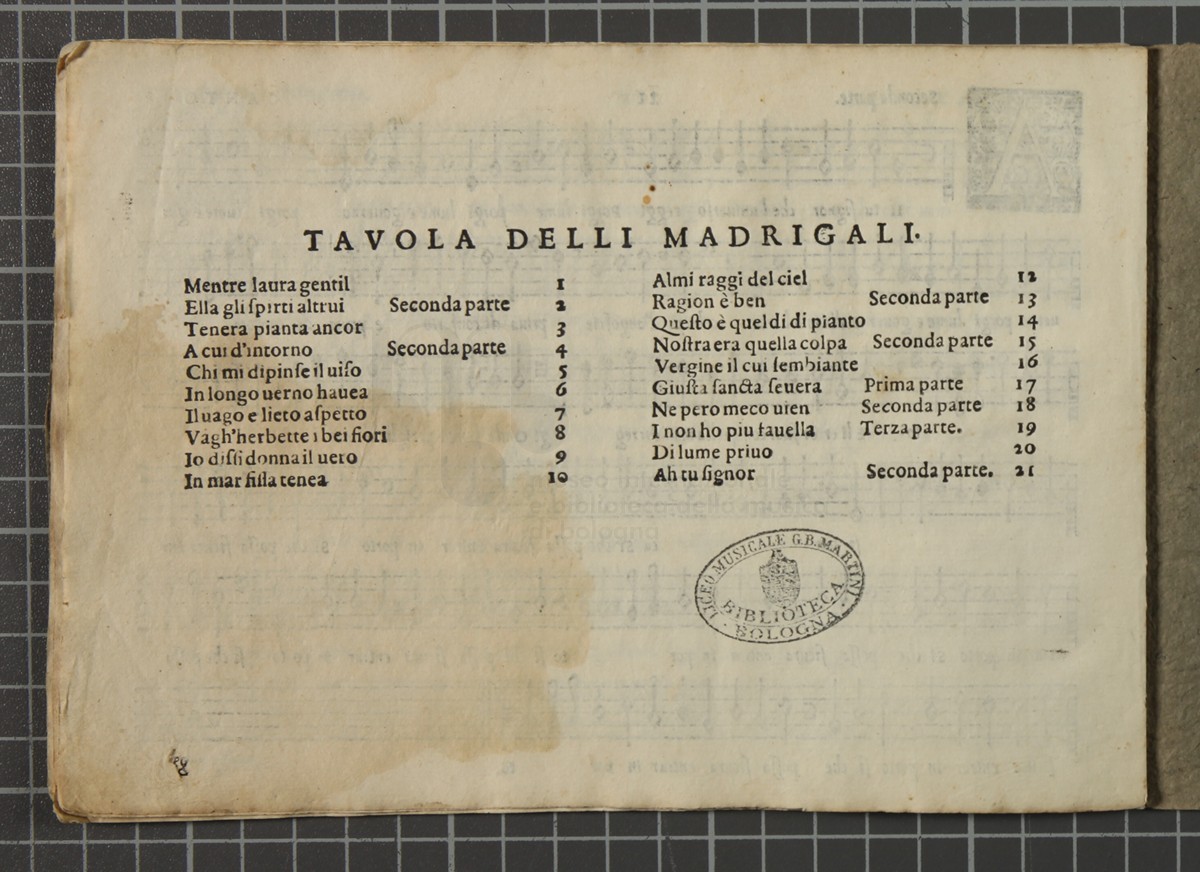 TAVOLA DELLI MADRIGALI.
Mentre laura gentil 1
Ella gli ſpirti altrui Seconda parte 2
Tenera pianta ancor 3
A cui d'intorno Seconda parte 4
Chi mi dipinſe il uiſo 5
In longo uerno hauea 6
Il uago e lieto aſpetto 7
Vagh'herbette i bei fiori 8
Io diſſi donna il uero 9
In mar ſiſſa tenea 10
Almi raggi del ciel 12
Ragion è ben Seconda parte 13
Queſto è quel di di pianto 14
Noſtra era quella colpa Seconda parte 15
Vergine il cui ſembiante 16
Giuſta ſancta ſeuera Prima parte 17
Ne pero meco uien Seconda parte 18
I non ho piu fauella Terza parte. 19
Di lume priuo 20
Ah tu ſignor Seconda parte. 21
LICEO MUSICALE G.B. MARTINI
BIBLIOTECA
BOLOGNA